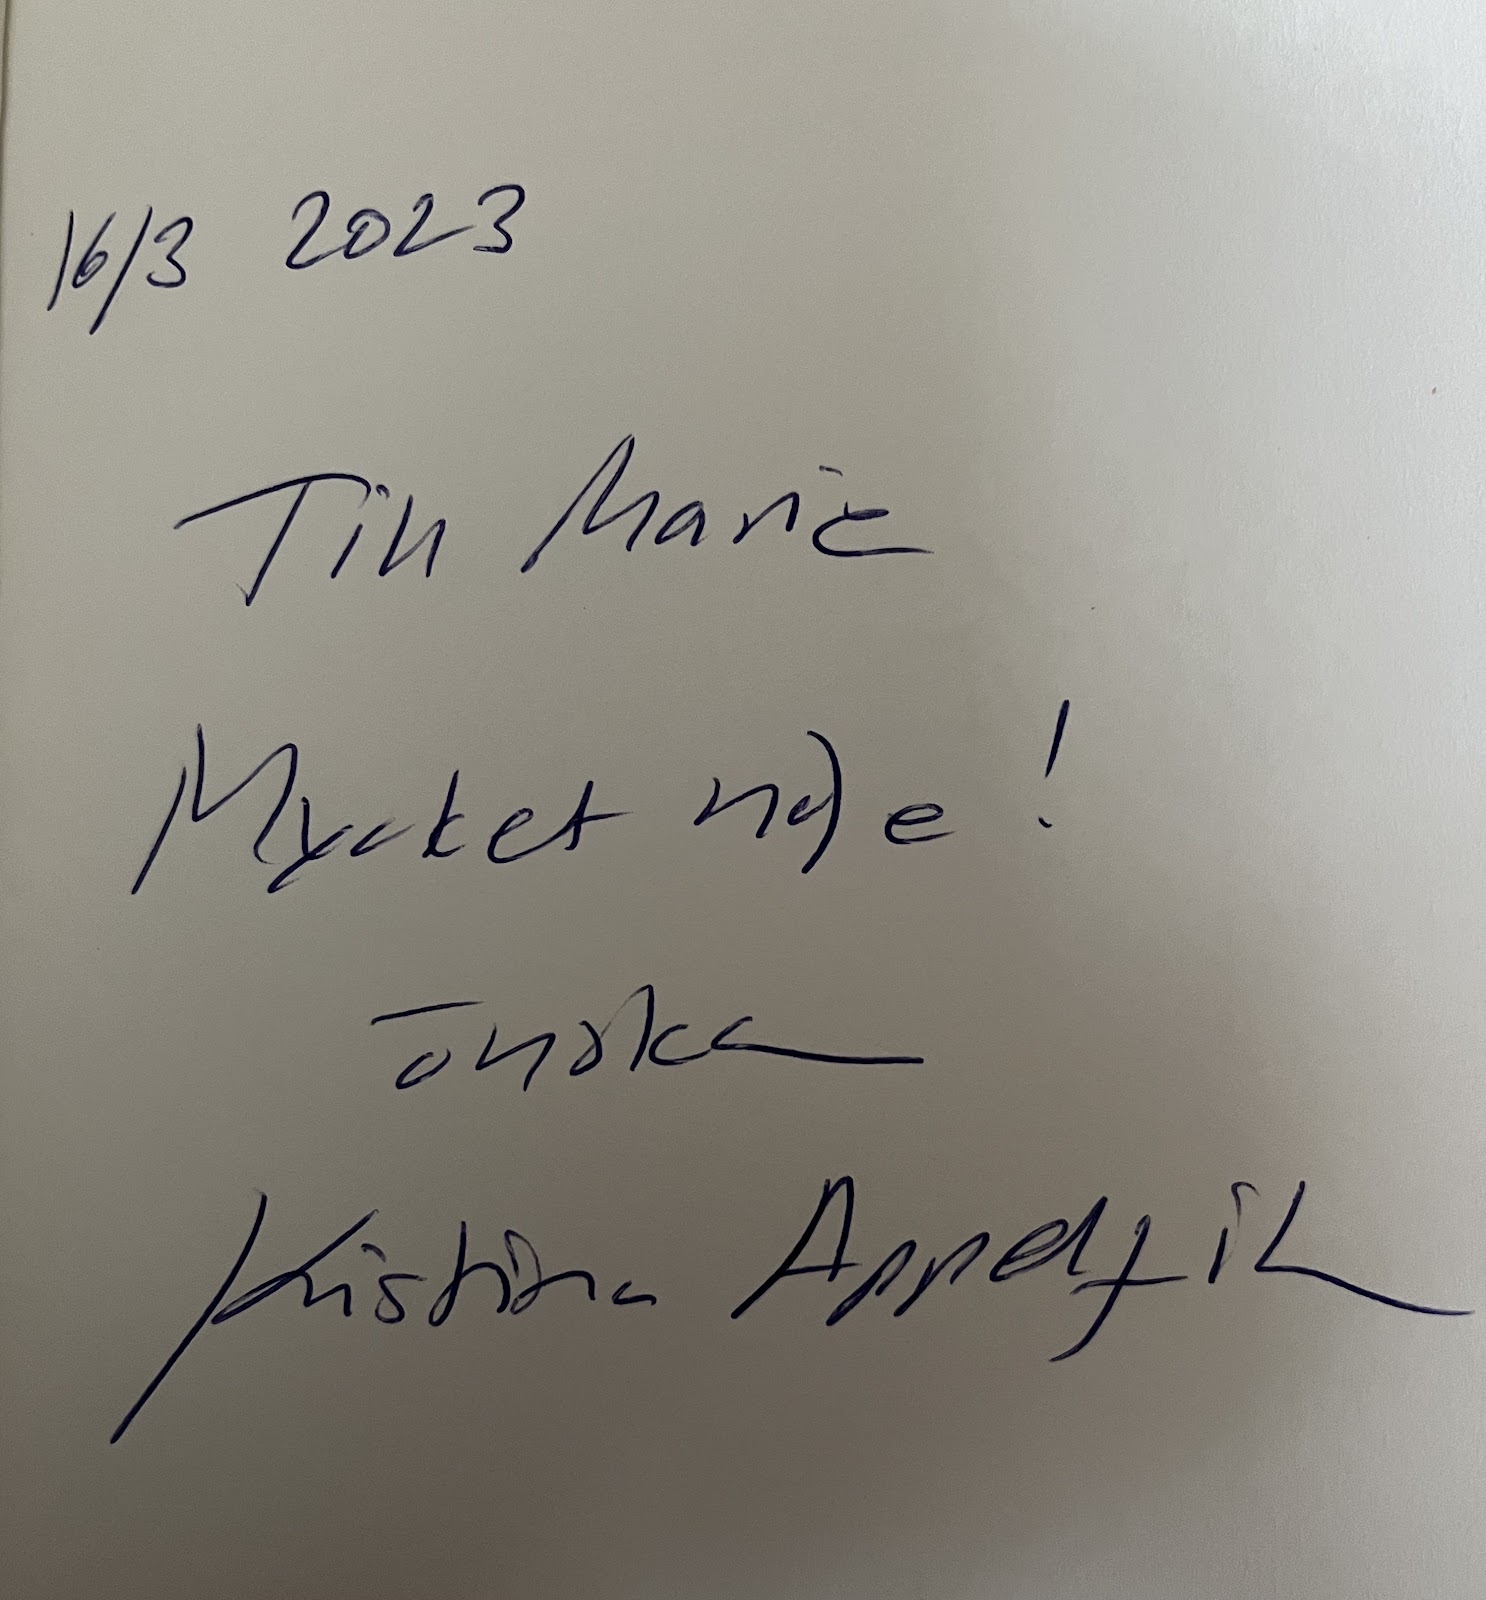 16/3 2023
Till Marie
Mycket nöje!
önskar
Kristina Appelqvist